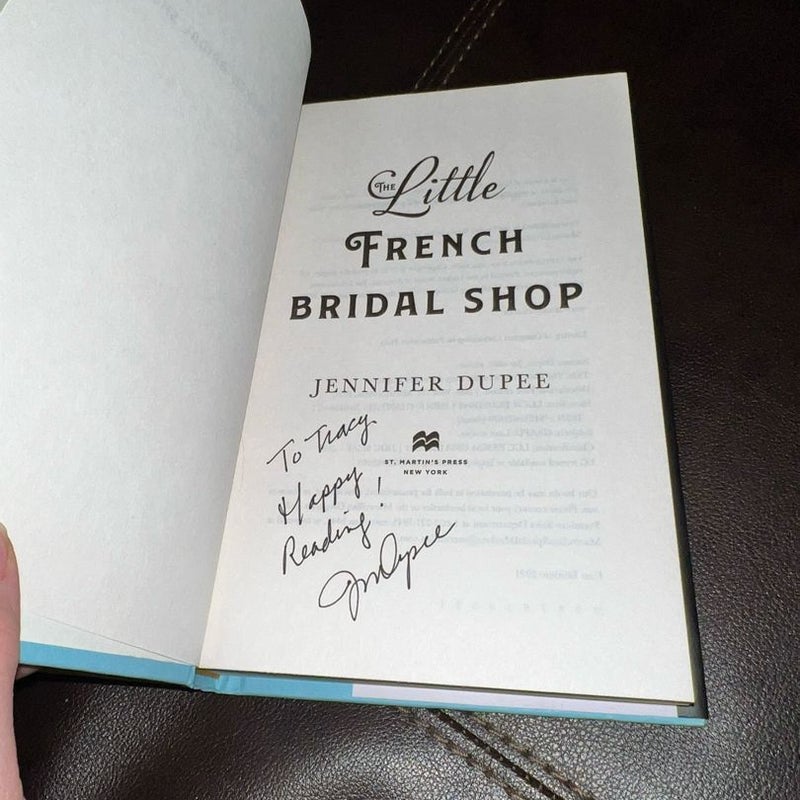 The Little
FRENCH
BRIDAL SHOP
JENNIFER DUPEE
To Tracy
ST. MARTIN'S PRESS
NEW YORK
Happy
Reading!
Jm Dupee